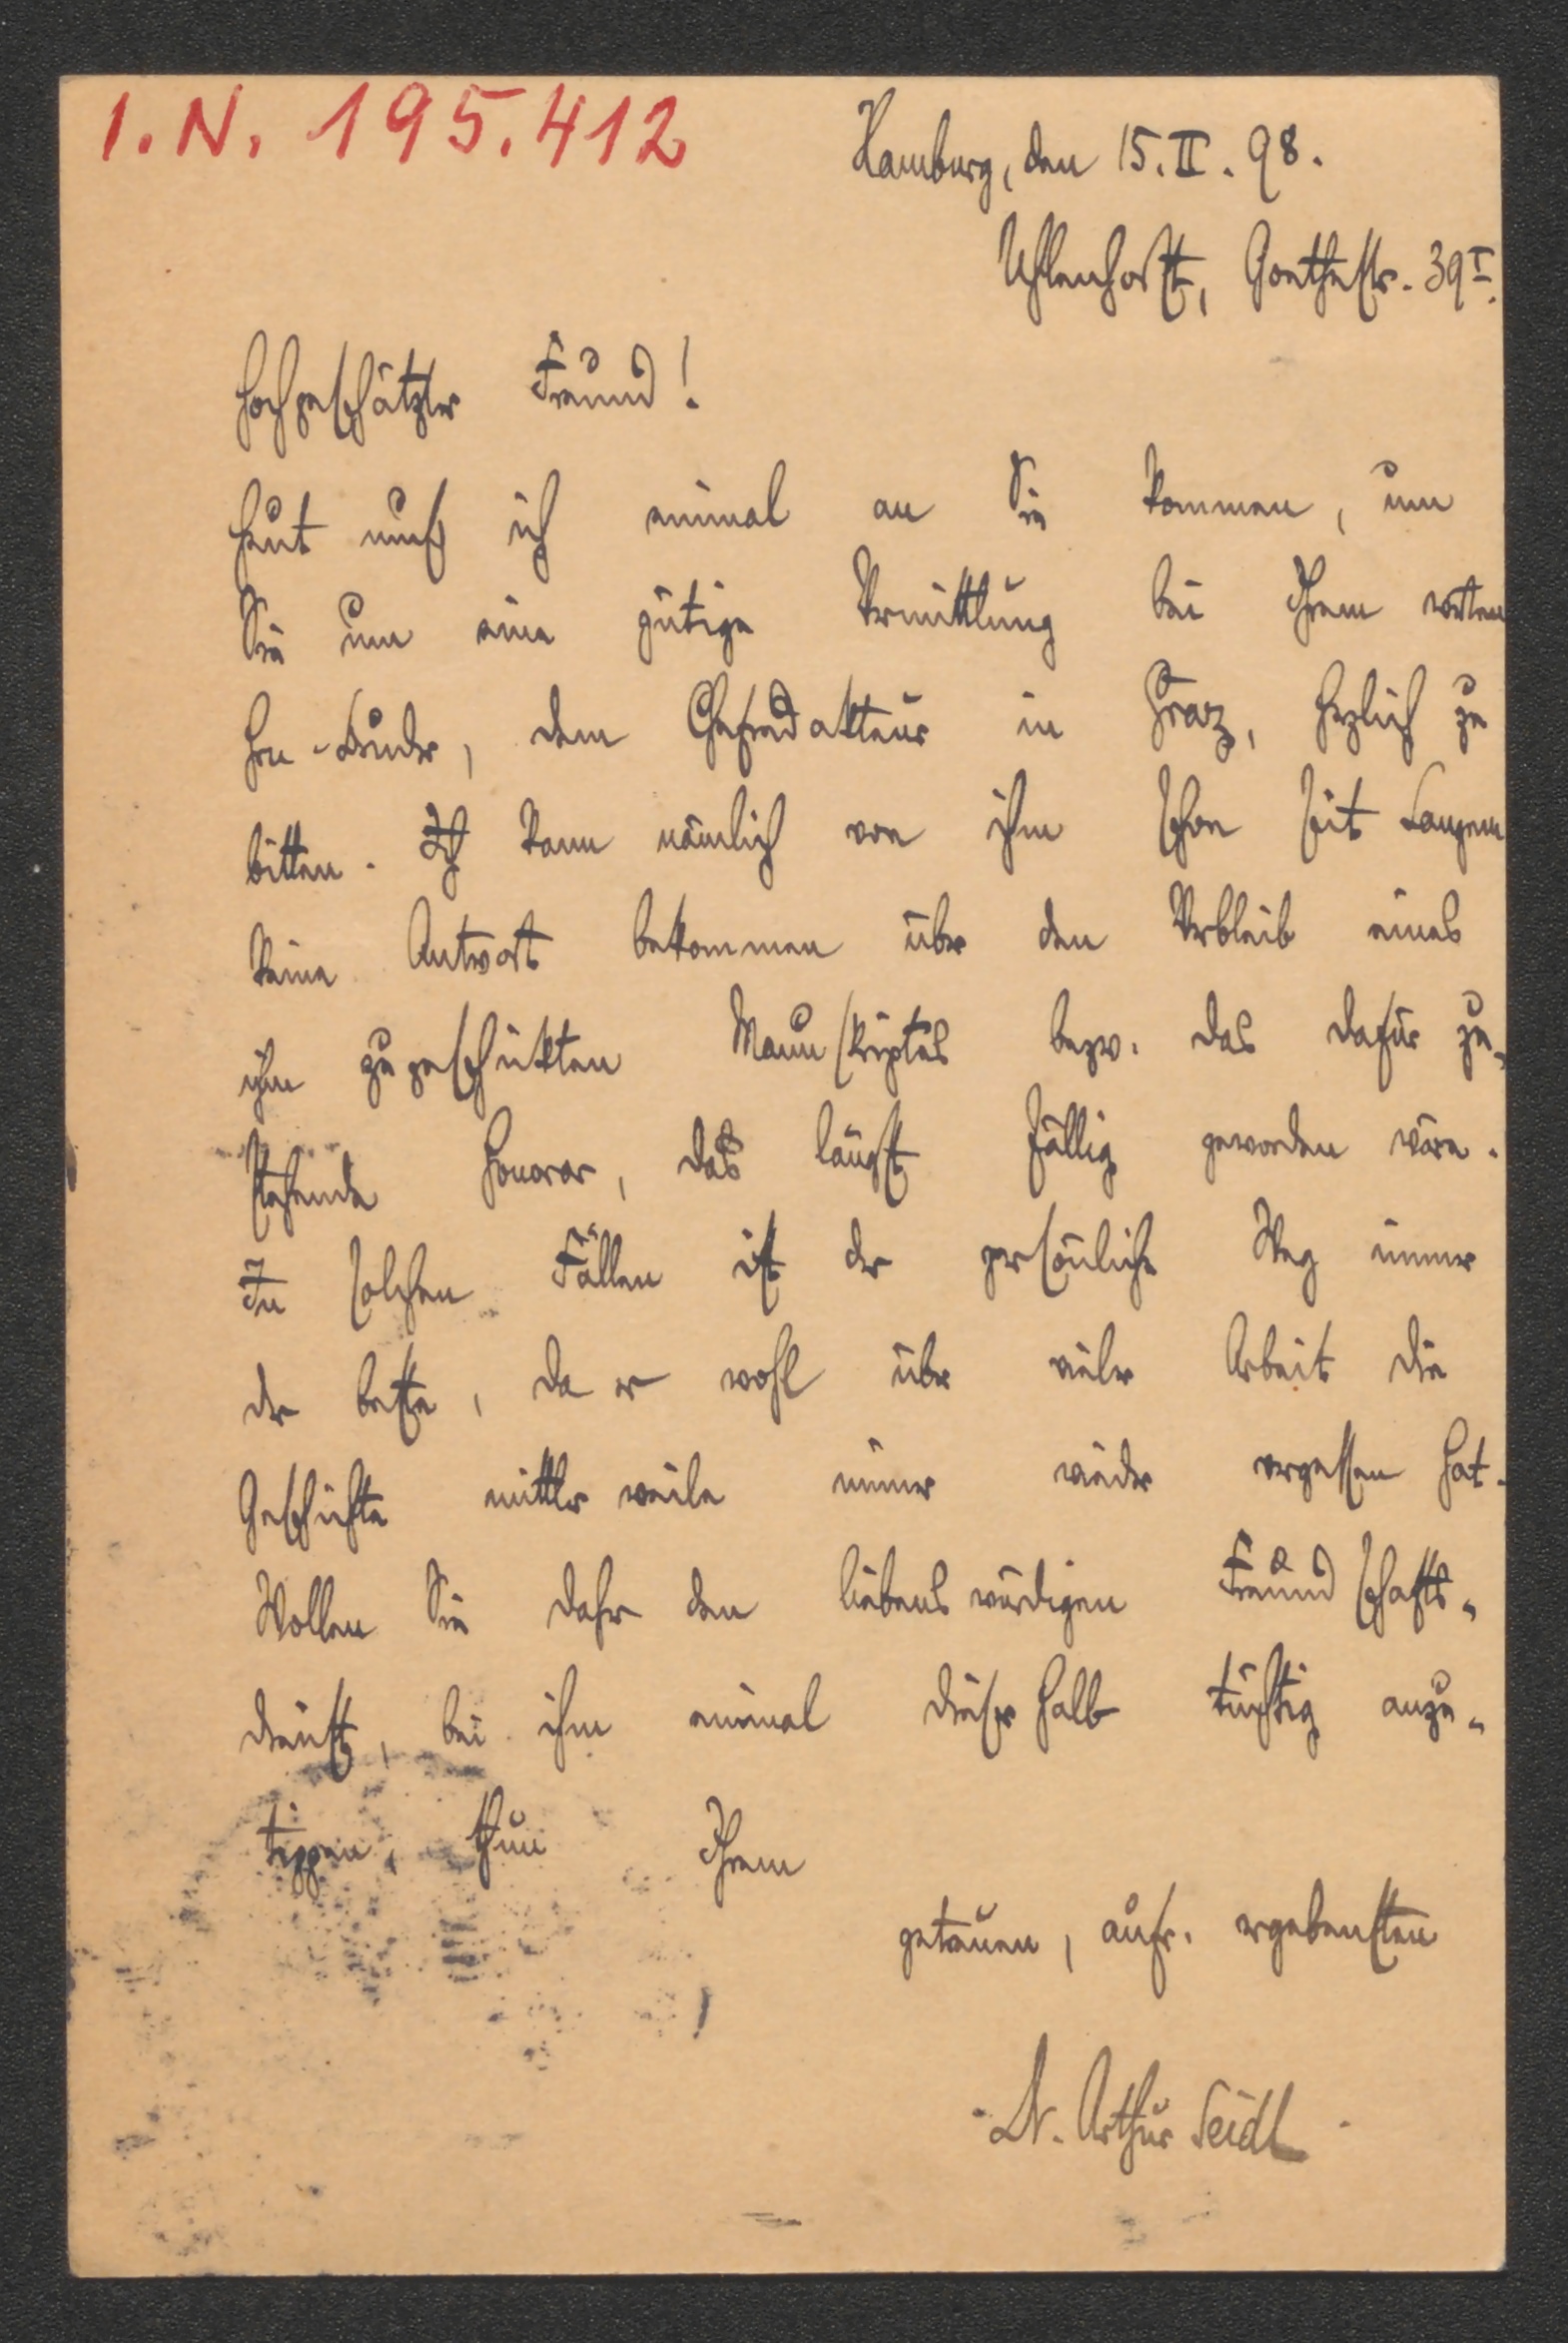 I.N. 195.412
Hamburg, den 15.II.98.
Uhlenhorst, Goethestr. 39 I.
Hochgeschätzter Freund!
Heut muß ich einmal an Sie kommen, um
Sie um eine gütige Vermittlung bei Ihrem werten
Hrn. Bruder, dem Chefredakteur in Graz, herzlich zu
bitten. Ich kann nämlich von ihm schon seit Langem
keine Antwort bekommen über den Verbleib eines
ihm zugeschickten Manuskriptes bezw. das dafür zu-
stehende Honorar, das längst fällig geworden wäre.
In solchen Fällen ist der persönliche Weg immer
der beste, da er wohl über vieler Arbeit die
Geschichte mittlerweile immer wieder vergessen hat.
Wollen Sie daher den liebenswürdigen Freundschafts-
dienst, bei ihm einmal dieserhalb tüchtig anzu-
tippen, thun Ihrem
getreuen, aufr. ergebensten
Dr. Arthur Seidl